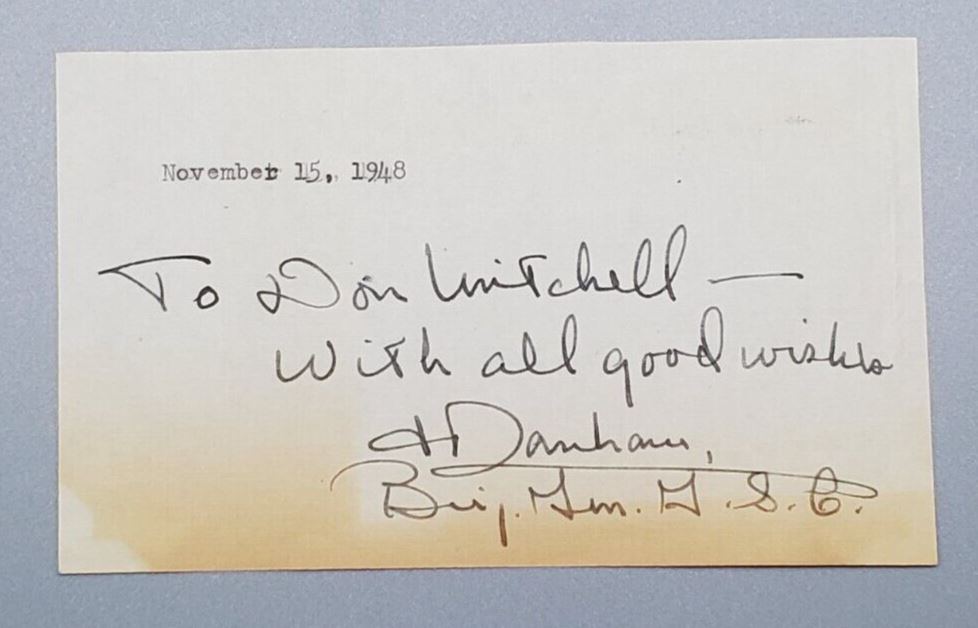 November 15, 1948
To Don Mitchell —
With all good wishes
Brig. Gen. G.S.C.